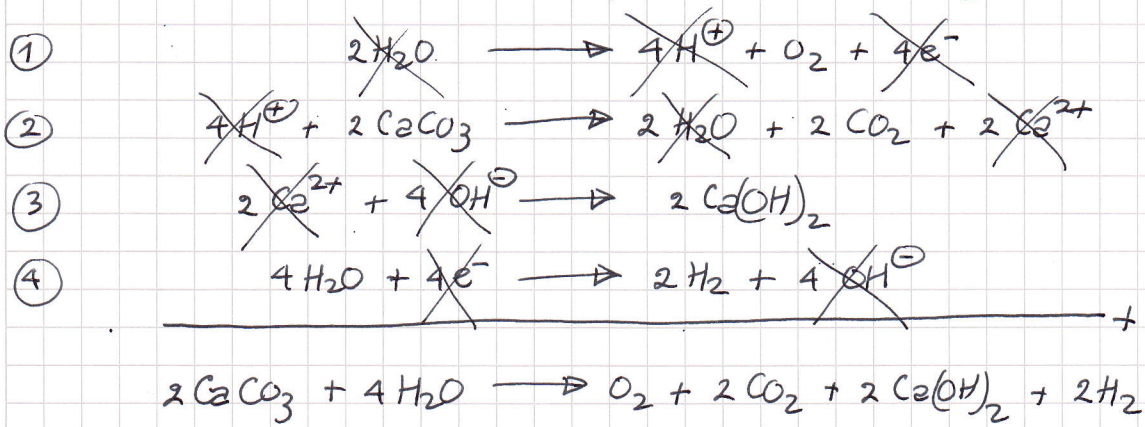 ① 2 H₂O → 4 H⊕ + O₂ + 4e⁻
② 4 H⊕ + 2 CaCO₃ → 2 H₂O + 2 CO₂ + 2 Ca²⁺
③ 2 Ca²⁺ + 4 OH⊖ → 2 Ca(OH)₂
④ 4 H₂O + 4e⁻ → 2 H₂ + 4 OH⊖
+
2 CaCO₃ + 4 H₂O → O₂ + 2 CO₂ + 2 Ca(OH)₂ + 2H₂